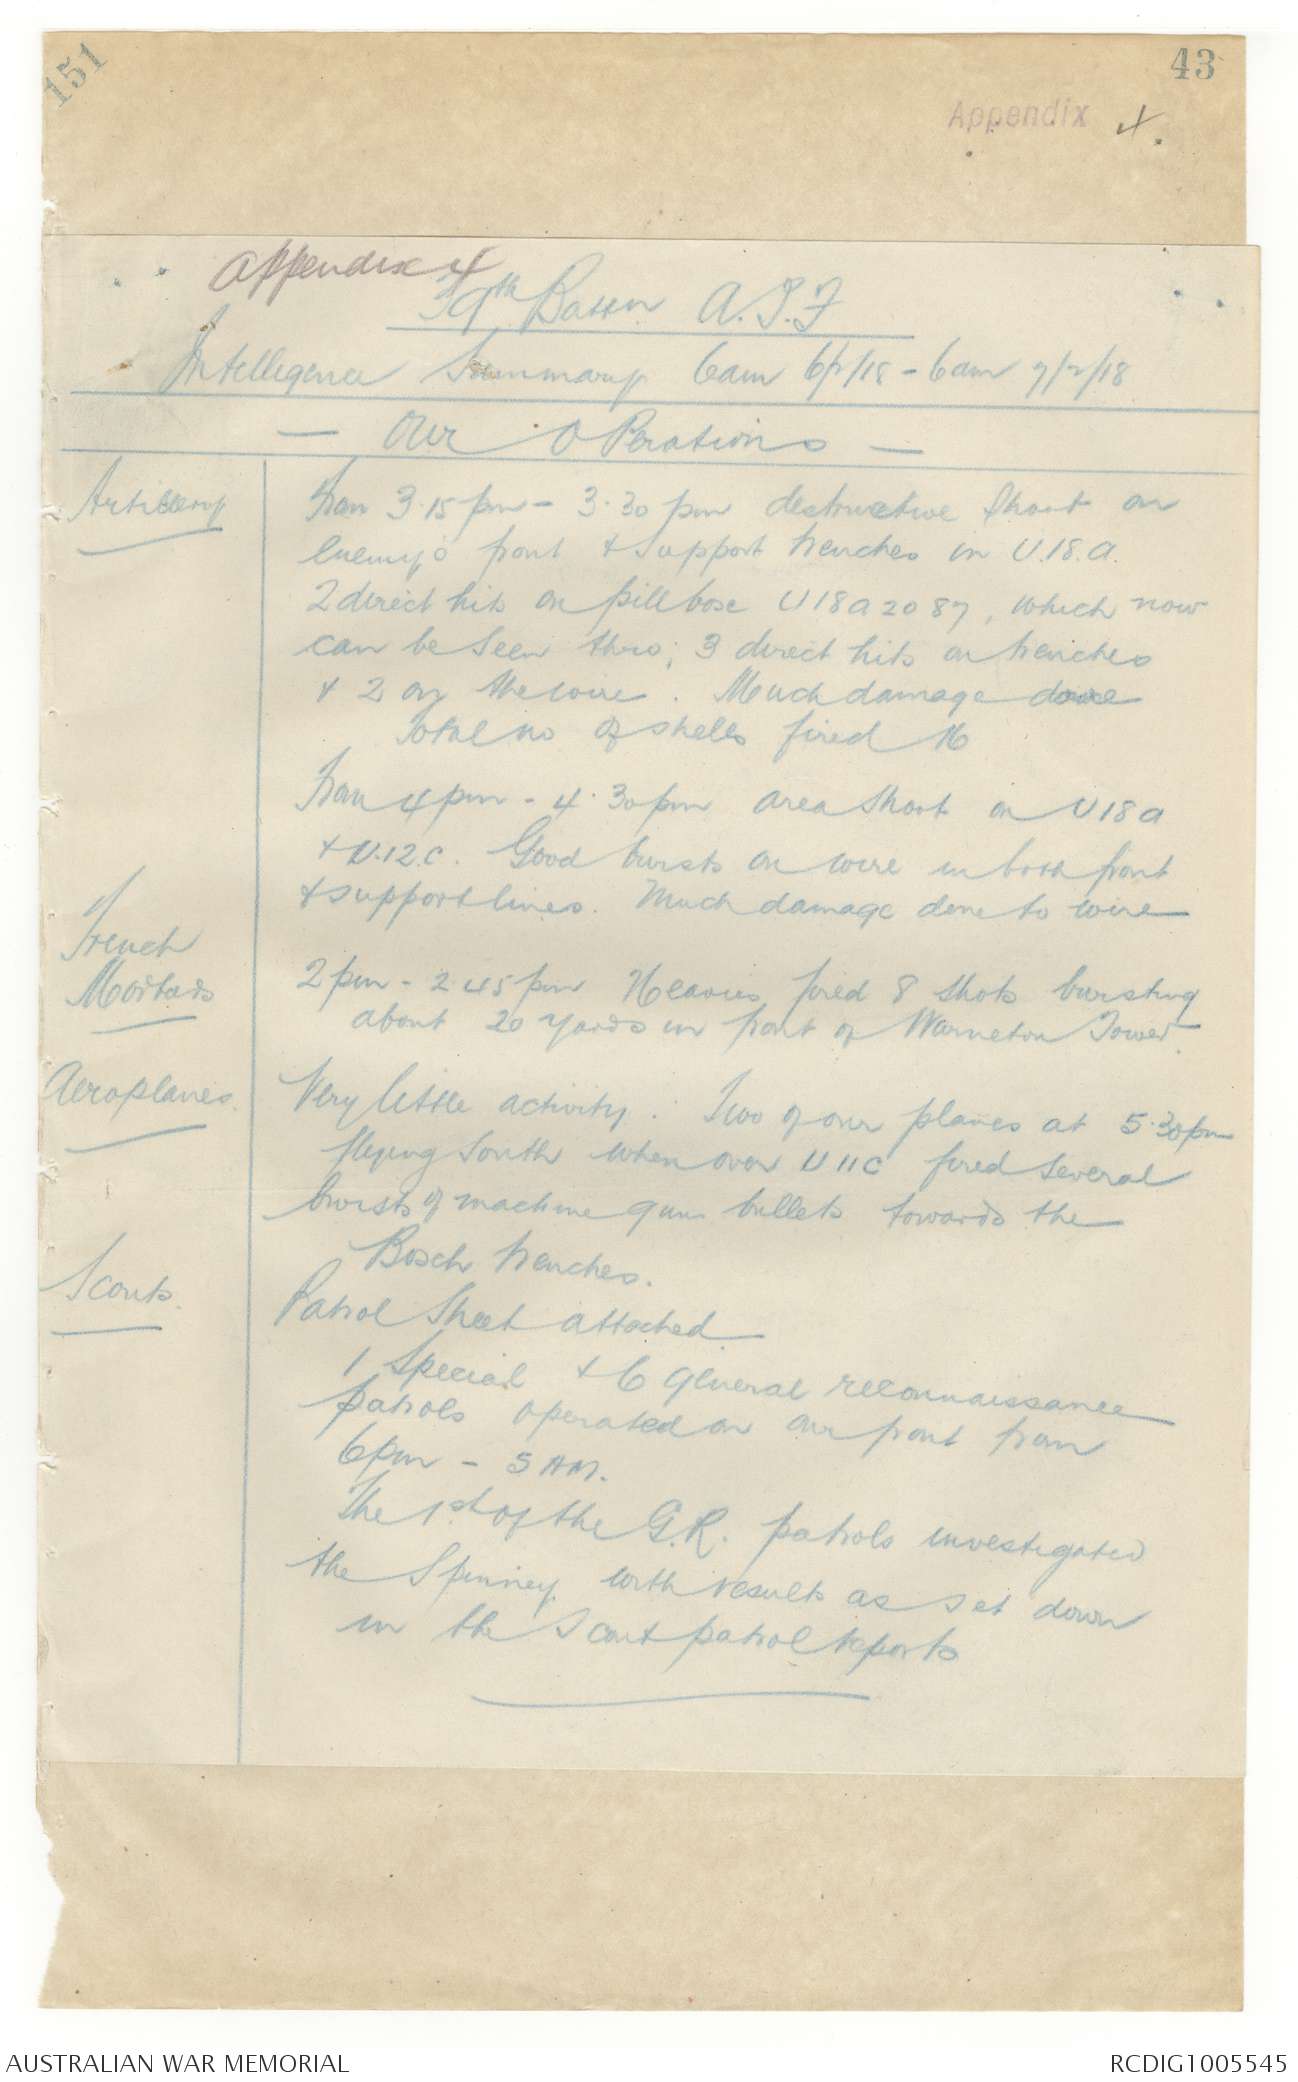 151
43
Appendix 4.
Appendix 4
39th Battn A.I.F
Intelligence Summary 6am 6/2/18 - 6am 7/2/18
- Our Operations -
Artillery
From 3.15pm - 3.30pm destructive shoot on
Enemys front & support trenches in U.18.a.
2 direct hits on pill box U18a2087, which now
can be seen thro; 3 direct hits on trenches
& 2 on the wire. Much damage done
Total no of shells fired 16
From 4pm - 4.30pm area shoot on U18a
& U.12.c. Good bursts on wire in both front
& support lines. Much damage done to wire
Trench
Mortars
2pm - 2.45pm Heavies fired 8 shots bursting
about 20 yards in front of Warneton Tower.
Aeroplanes.
Very little activity. Two of our planes at 5.30pm
flying South when over U11C fired several
bursts of machine gun bullets towards the
Bosch trenches.
Scouts.
Patrol Sheet attached
1 Special & 6 general reconnaissance
patrols operated on our front from
6pm - 5AM.
The 1st of the G.R. patrols investigated
the Spinney with results as set down
in the Scout patrol reports
AUSTRALIAN WAR MEMORIAL
RCDIG1005545